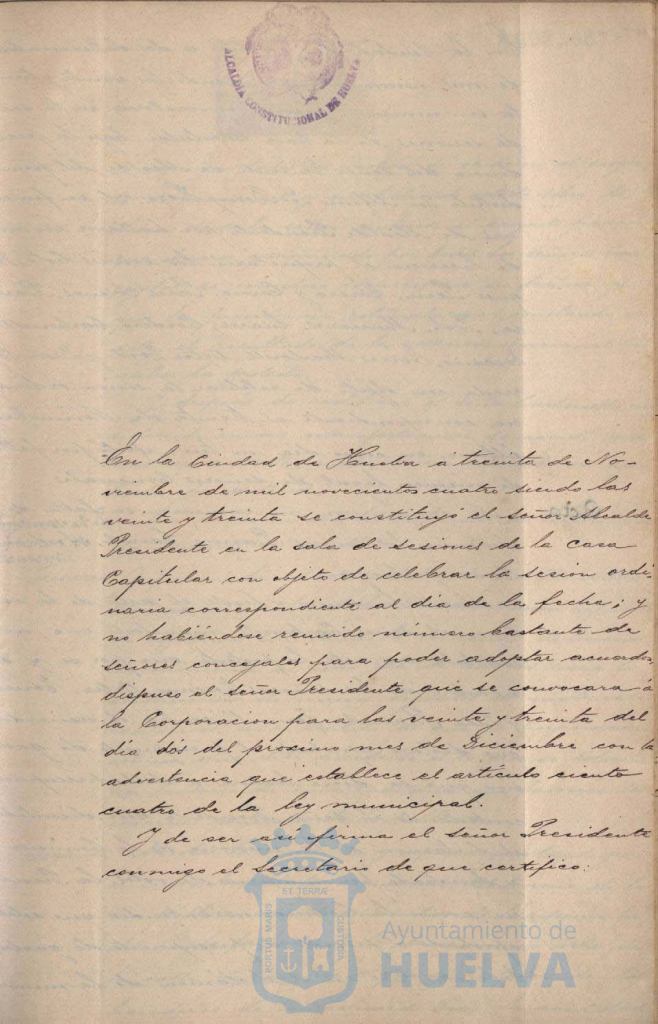 ALCALDIA CONSTITUCIONAL DE HUELVA
En la Ciudad de Huelva á treinta de No-
viembre de mil novecientos cuatro siendo las
veinte y treinta se constituyó el señor Alcalde
Presidente en la sala de sesiones de la casa
Capitular con objeto de celebrar la sesion ordi-
naria correspondiente al dia de la fecha; y
no habiéndose reunido número bastante de
señores concejales para poder adoptar acuerdos,
dispuso el señor Presidente que se convocara á
la Corporacion para las veinte y treinta del
dia dós del proximo mes de Diciembre con la
advertencia que establece el artículo ciento
cuatro de la ley municipal.
Y de ser asi firma el señor Presidente
conmigo el Secretario de que certifico:
ET TERRÆ
PORTUS MARIS
CUSTODIA
Ayuntamiento de
HUELVA